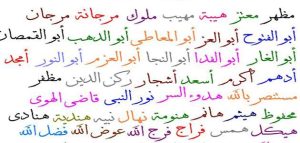 مظهر معتز هيبة مهيب ملوك مرجانة مرجان
أبو الفتوح أبو العز أبو المعاطي أبو الدهب أبو القمصان
أبو الغار أبو الفدا أبو النجا أبو العزم أبو النور أمجد
أدهم أكرم أسعد أشجار ركن الدين مظفر
مستنصر بالله هدوء السر نور النبى قاضى الهوى
محفوظ هيثم هانم هنومة نهال نبيه هندية هنادى
هيكل همس فراج فرج الله عوض الله فضل الله